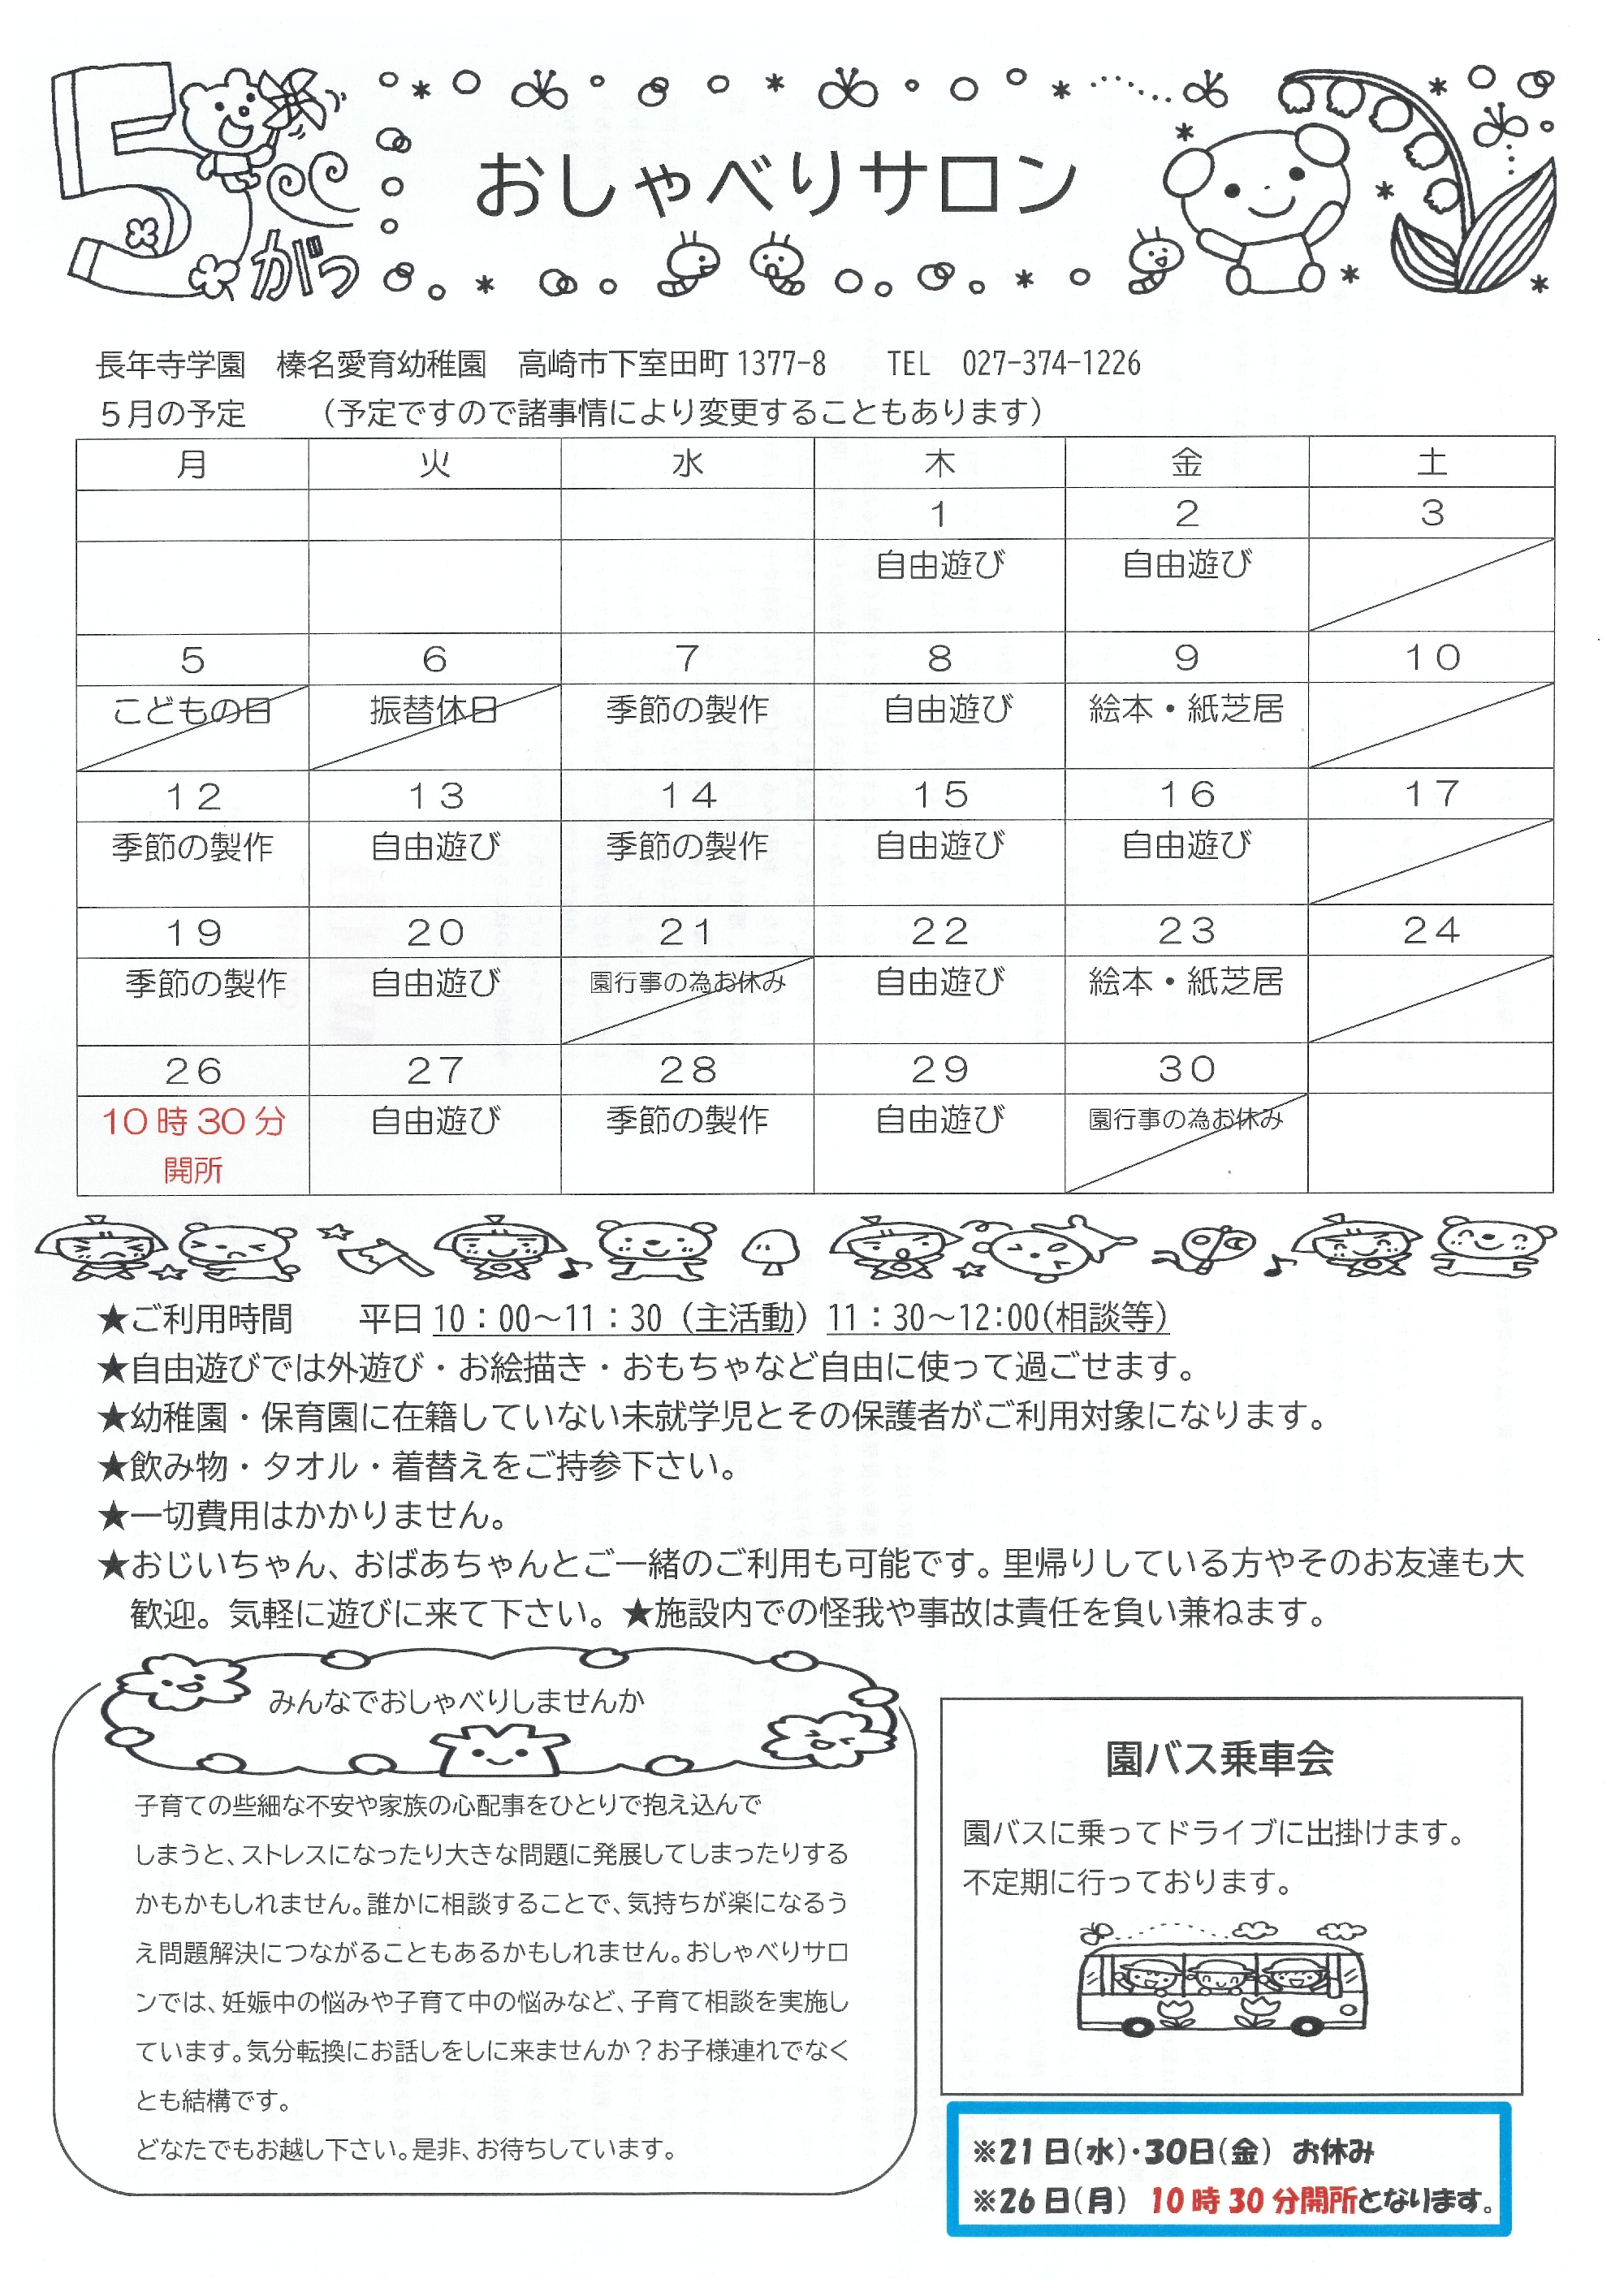 5がつ
おしゃべりサロン
長年寺学園　榛名愛育幼稚園　高崎市下室田町 1377-8　　TEL　027-374-1226
５月の予定　　（予定ですので諸事情により変更することもあります）
月　火　水　木　金　土
1　2　3
自由遊び　自由遊び
5　6　7　8　9　10
こどもの日　振替休日　季節の製作　自由遊び　絵本・紙芝居
12　13　14　15　16　17
季節の製作　自由遊び　季節の製作　自由遊び　自由遊び
19　20　21　22　23　24
季節の製作　自由遊び　園行事の為お休み　自由遊び　絵本・紙芝居
26　27　28　29　30
10 時 30 分　自由遊び　季節の製作　自由遊び　園行事の為お休み
開所
★ご利用時間　　平日 10：00～11：30（主活動）11：30～12:00(相談等）
★自由遊びでは外遊び・お絵描き・おもちゃなど自由に使って過ごせます。
★幼稚園・保育園に在籍していない未就学児とその保護者がご利用対象になります。
★飲み物・タオル・着替えをご持参下さい。
★一切費用はかかりません。
★おじいちゃん、おばあちゃんとご一緒のご利用も可能です。里帰りしている方やそのお友達も大
歓迎。気軽に遊びに来て下さい。★施設内での怪我や事故は責任を負い兼ねます。
みんなでおしゃべりしませんか
子育ての些細な不安や家族の心配事をひとりで抱え込んで
しまうと、ストレスになったり大きな問題に発展してしまったりする
かもかもしれません。誰かに相談することで、気持ちが楽になるう
え問題解決につながることもあるかもしれません。おしゃべりサロ
ンでは、妊娠中の悩みや子育て中の悩みなど、子育て相談を実施し
ています。気分転換にお話しをしに来ませんか？お子様連れでなく
とも結構です。
どなたでもお越し下さい。是非、お待ちしています。
園バス乗車会
園バスに乗ってドライブに出掛けます。
不定期に行っております。
※21 日(水)・30日(金)　お休み
※26 日(月)　10 時 30 分開所となります。